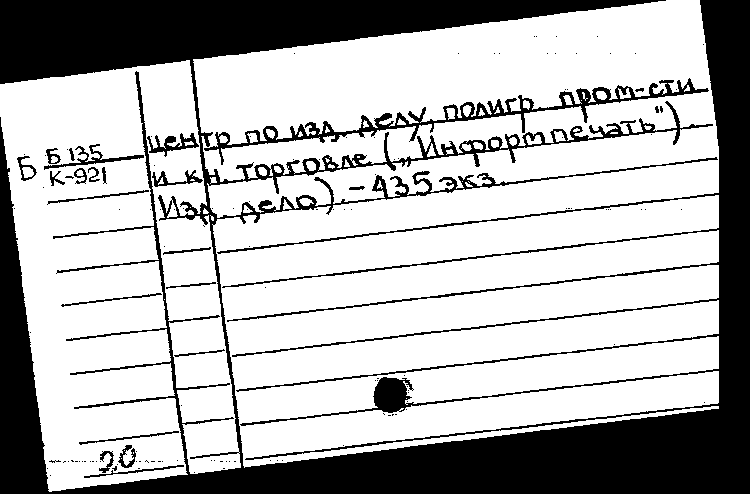 центр по изд. делу, полигр. пром-сти
Б Б 135
К-921
и кн. торговле („Информпечать").
Изд. дело). – 435 экз.
20